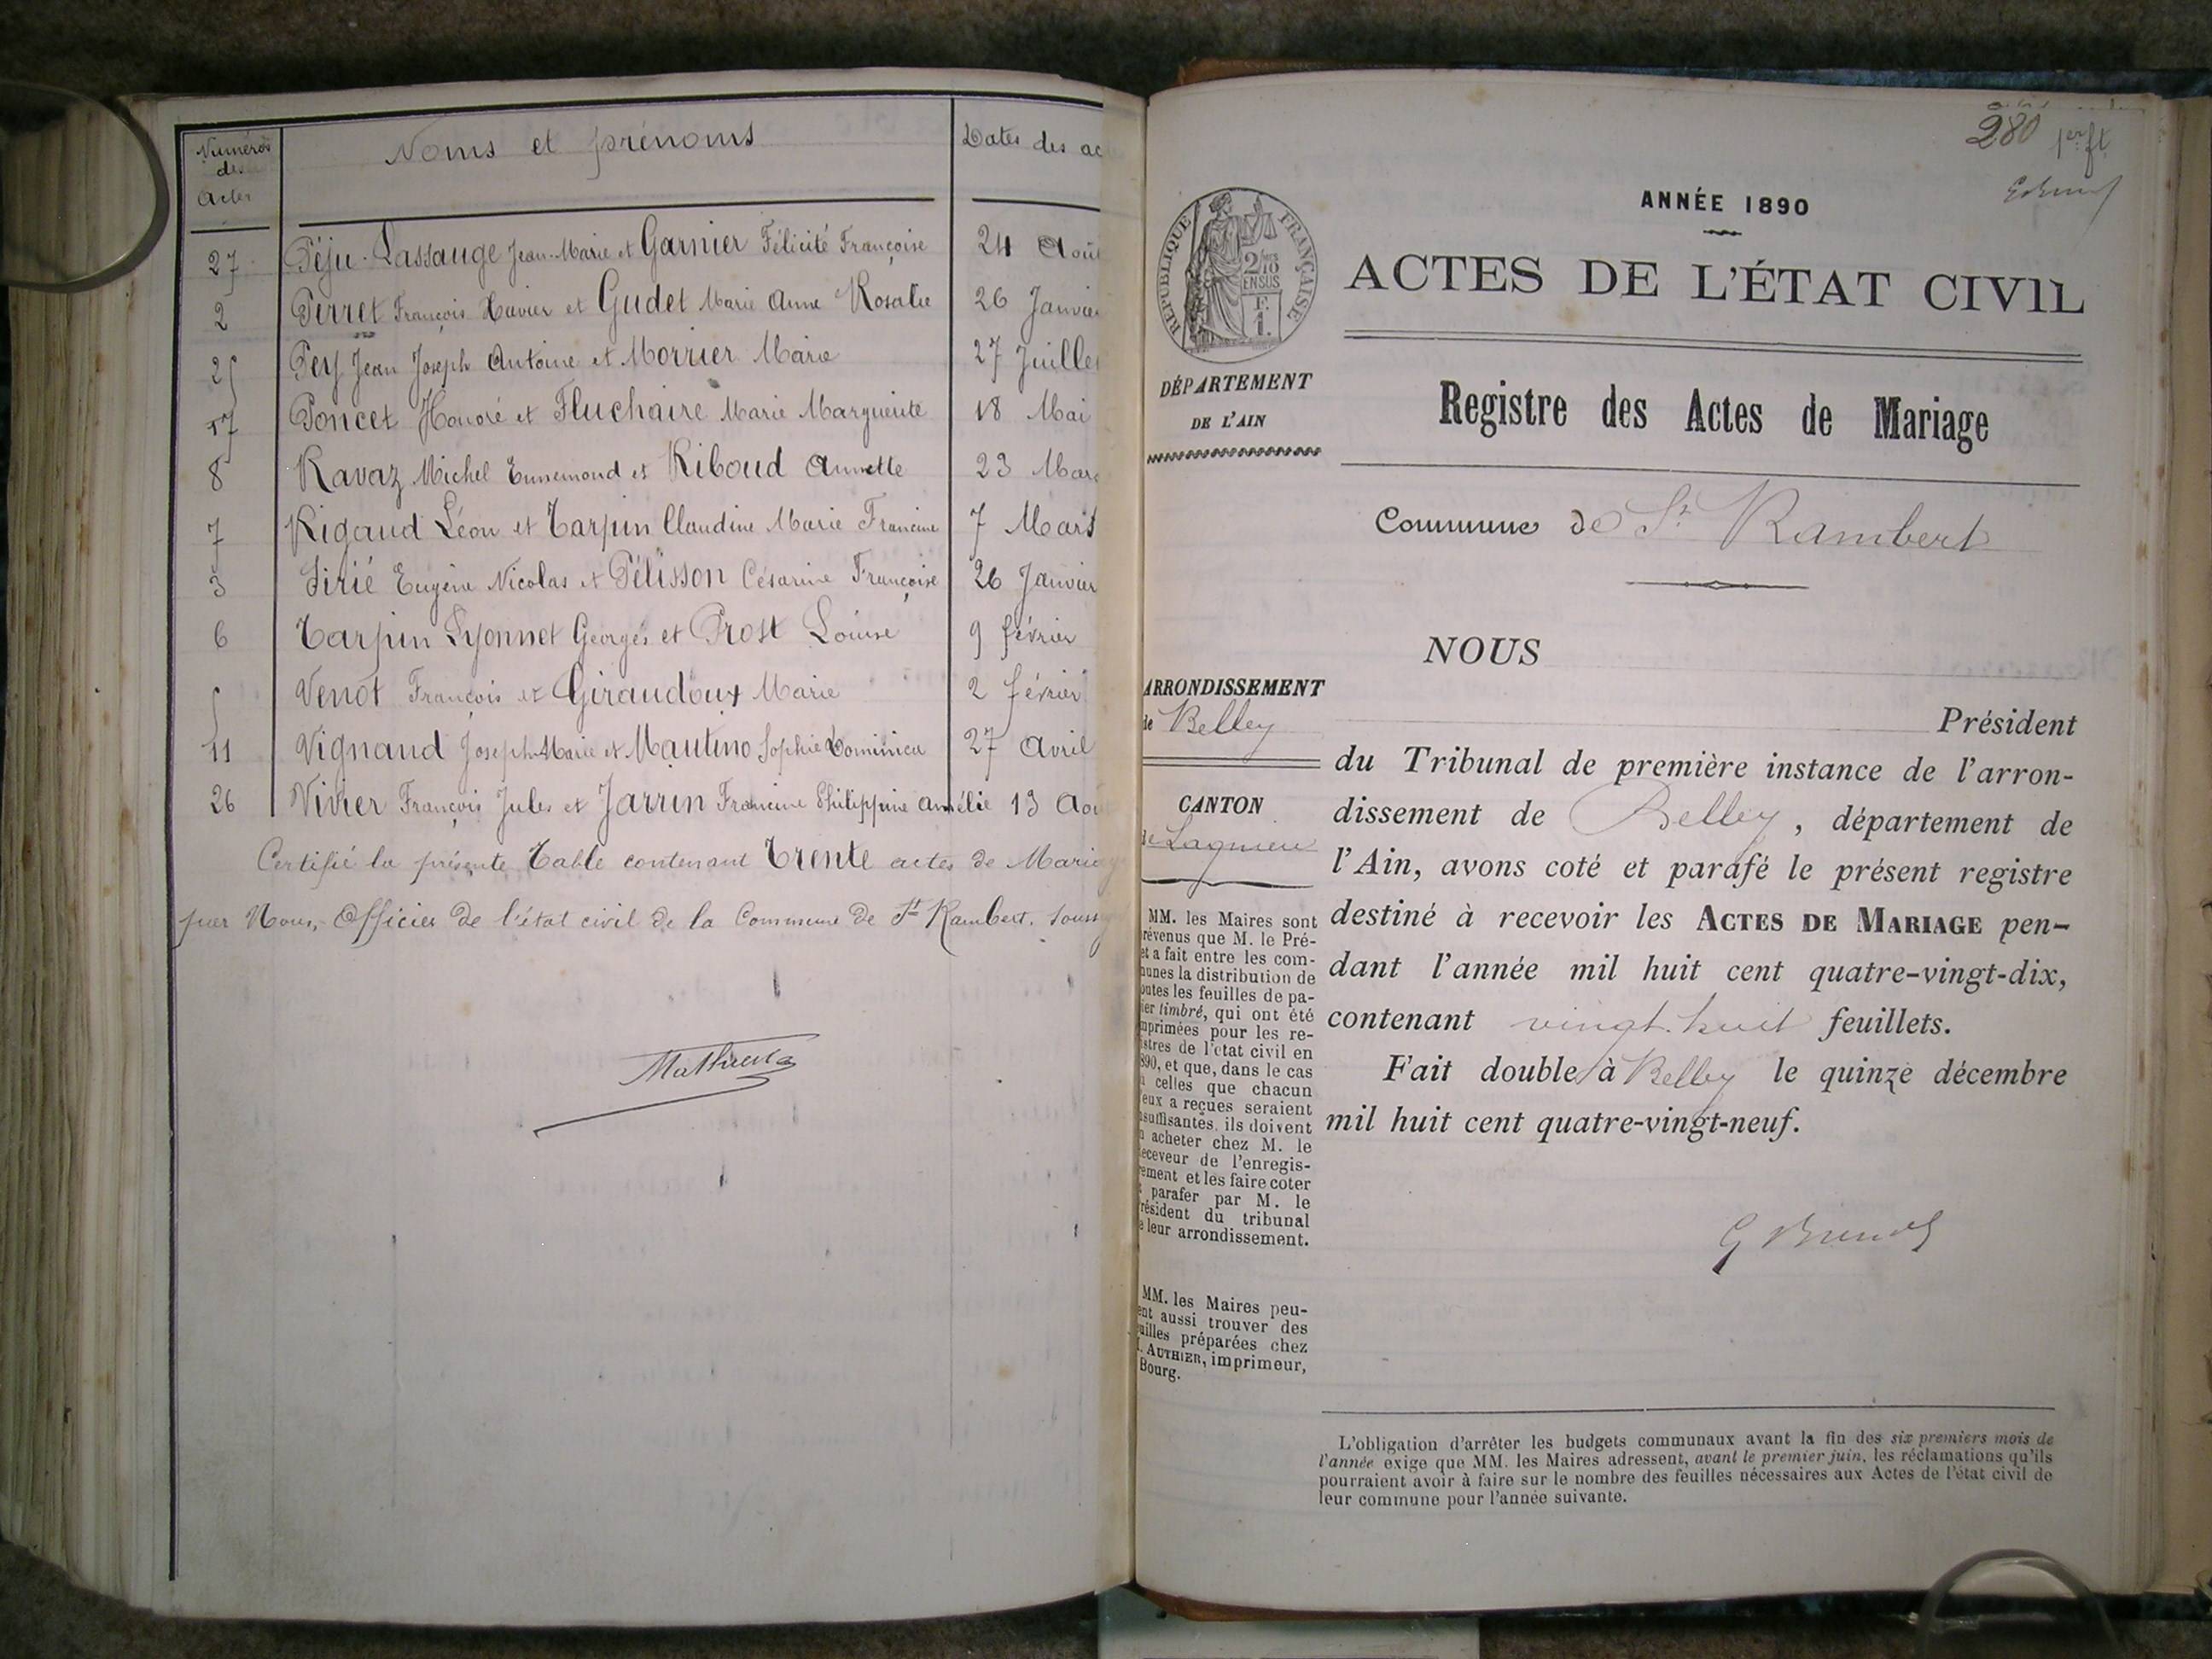 Numéros des Actes | Noms et prénoms | Dates des ac
27 Péju-Lassauge Jean-Marie et Garnier Félicité Françoise 24 Août
2 Perret François Xavier et Gudet Marie Anne Rosalie 26 Janvier
25 Pey Jean Joseph Antoine et Morrier Marie 27 Juillet
17 Poncet Honoré et Fluchaire Marie Marguerite 18 Mai
8 Ravaz Michel Ennemond et Riboud Annette 23 Mars
7 Rigaud Léon et Tarpin Claudine Marie Francine 7 Mars
3 Sirié Eugène Nicolas et Pélisson Césarine Françoise 26 Janvier
6 Tarpin Lyonnet Georges et Prost Louise 9 février
5 Venot François et Giraudoux Marie 2 février
11 Vignand Joseph-Marie et Mautino Sophie Dominica 27 Avril
26 Vivier François Jules et Jarrin Francine Philippine Amélie 13 Aoû
Certifié la présente Table contenant Trente actes de Mariage
par Nous, Officier de l'état civil de la Commune de St Rambert. soussig
280 1er ft.
ANNÉE 1890
ACTES DE L'ÉTAT CIVIL
RÉPUBLIQUE FRANÇAISE
2/10 EN SUS
F. 1.
DÉPARTEMENT
DE L'AIN
Registre des Actes de Mariage
Commune de St Rambert
NOUS
ARRONDISSEMENT
de Belley
Président
du Tribunal de première instance de l'arron-
CANTON
de Lagnieu
dissement de Belley, département de
l'Ain, avons coté et parafé le présent registre
destiné à recevoir les ACTES DE MARIAGE pen-
dant l'année mil huit cent quatre-vingt-dix,
contenant vingt-huit feuillets.
Fait double à Belley le quinze décembre
mil huit cent quatre-vingt-neuf.
MM. les Maires sont
révenus que M. le Pré-
et a fait entre les com-
unes la distribution de
outes les feuilles de pa-
ier timbré, qui ont été
mprimées pour les re-
istres de l'état civil en
890, et que, dans le cas
ù celles que chacun
'eux a reçues seraient
nsuffisantes, ils doivent
n acheter chez M. le
eceveur de l'enregis-
rement et les faire coter
t parafer par M. le
résident du tribunal
e leur arrondissement.
MM. les Maires peu-
ent aussi trouver des
uilles préparées chez
M. AUTHIER, imprimeur,
Bourg.
L'obligation d'arrêter les budgets communaux avant la fin des six premiers mois de
l'année exige que MM. les Maires adressent, avant le premier juin, les réclamations qu'ils
pourraient avoir à faire sur le nombre des feuilles nécessaires aux Actes de l'état civil de
leur commune pour l'année suivante.